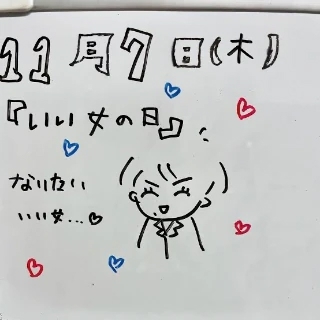 11月7日(木)
『いい女の日』
なりたい
いい女…♡